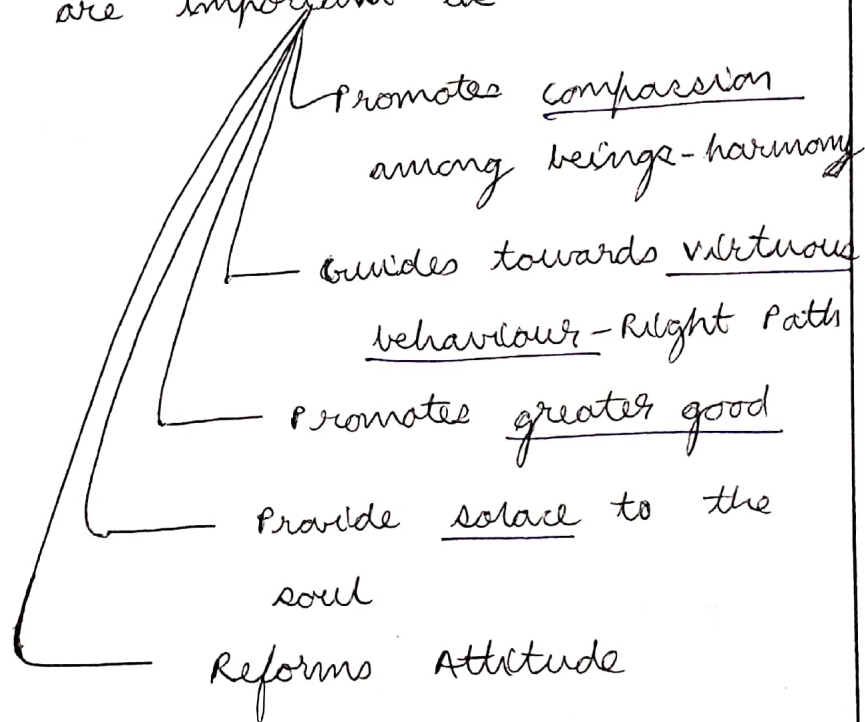 are important
Promotes compassion
among beings - harmony
Guides towards virtuous
behaviour - Right Path
Promotes greater good
Provide solace to the
soul
Reforms Attitude